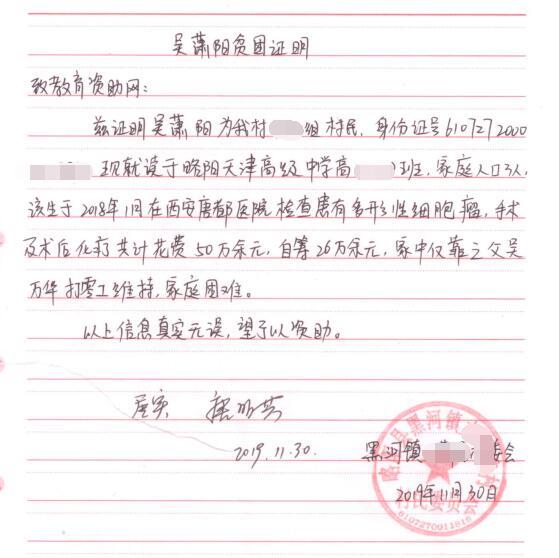 吴萧阳贫困证明
致教育资助网：
兹证明吴萧阳为我村组村民，身份证号6107272000
现就读于略阳天津高级中学高班，家庭人口3人，
该生于2018年11月在西安唐都医院检查患有多形性细胞瘤，手术
及术后化疗共计花费50万余元，自筹26万余元，家中仅靠之父吴
万华打零工维持，家庭困难。
以上信息真实无误，望予以资助。
属实
2019.11.30.
黑河镇委会
2019年11月30日
略阳县黑河镇村
村民委员会
6107270911816